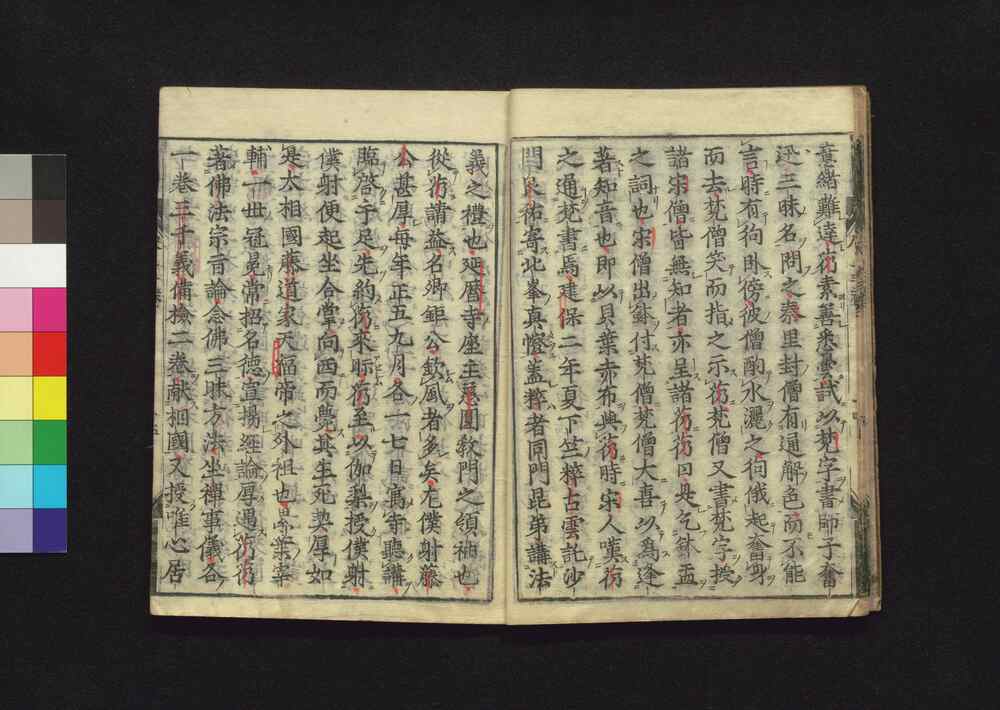 意緒難達芿素善悉曇試以梵字書師子奮
迅三昧名問之秦里封僧有通解色而不能
言時有狗臥傍彼僧酌水灑之狗俄起奮身
而去梵僧笑而指之示芿梵僧又書梵字授
諸宋僧皆無知者亦呈諸芿芿曰是乞鉢盂
之詞也宋僧出鉢付梵僧梵僧大喜以為逢
著知音也即以貝葉赤布與芿時宋人嘆芿
之通梵書焉建保二年夏下竺粹古雲託沙
門良祐寄北峯真慘蓋粹者同門昆弟講法
義之禮也延曆寺座主慈圓教門之領袖也
從芿請益名卿鉅公欽風者多矣左僕射藤
公甚厚每年正五九月各一七日寓寺聽講
臨啓手足先約芿來眎芿至以伽梨授僕射
僕射便起坐合掌向西而斃其生死契厚如
是大相國藤道家天福帝之外祖也累葉宰
輔一世冠冕常招名德宣揚經論厚遇芿芿
著佛法宗旨論念佛三昧方法坐禪事儀各
一卷三千義備撿二卷献相國又授唯心居